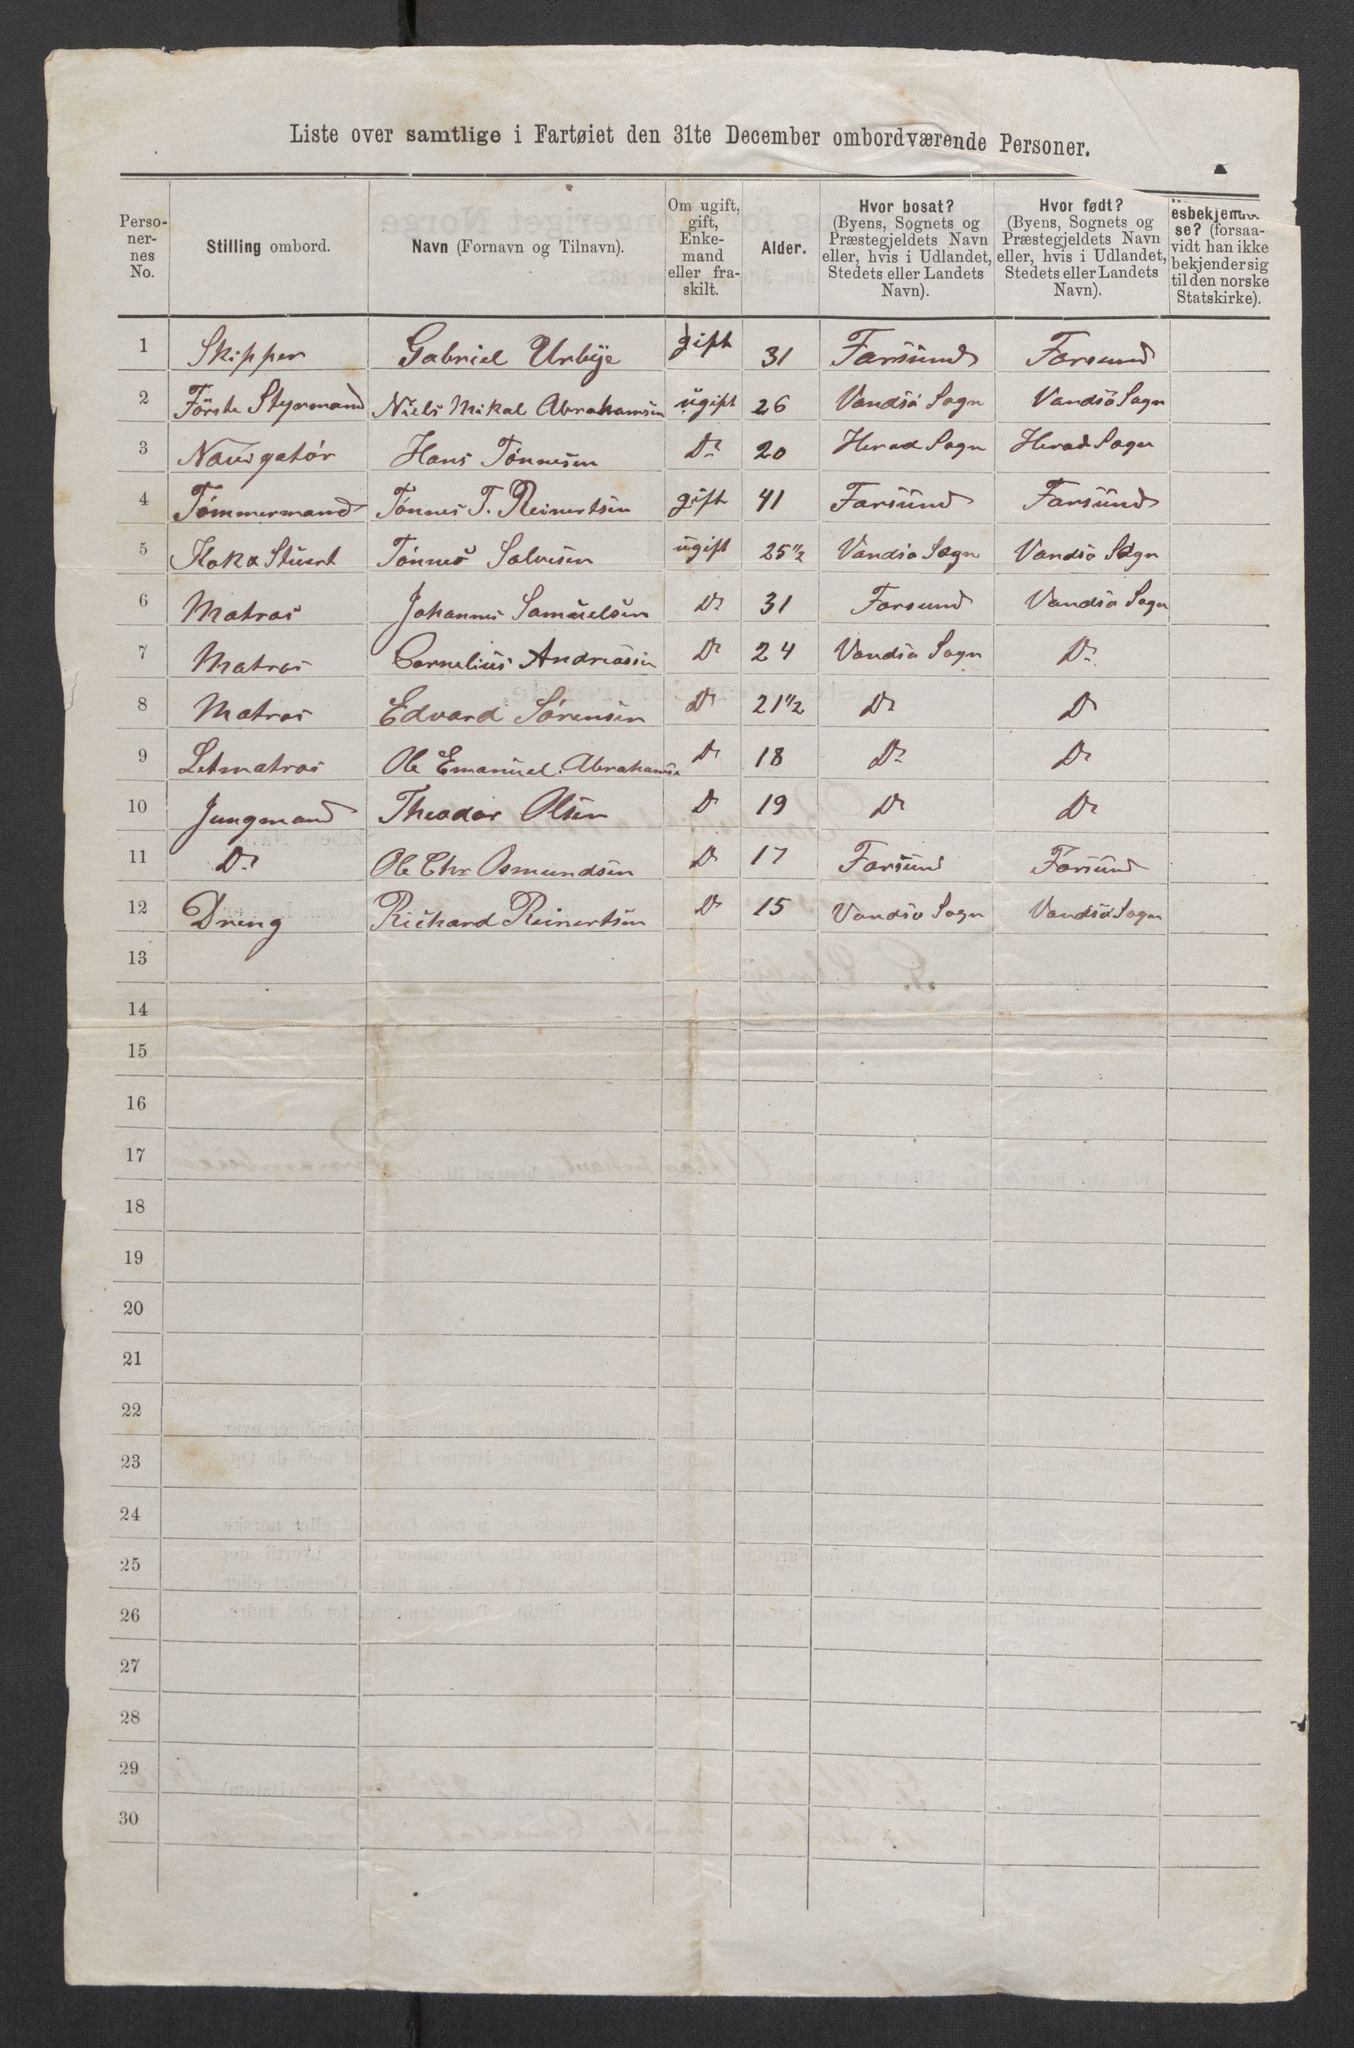 Liste over samtlige i Fartøiet den 31te December ombordværende Personer.
Perso-
ner-
nes
No.
Stilling ombord.
Navn (Fornavn og Tilnavn).
Om ugift,
gift,
Enke-
mand
eller fra-
skilt.
Alder.
Hvor bosat?
(Byens, Sognets og
Præstegjeldets Navn
eller, hvis i Udlandet,
Stedets eller Landets
Navn).
Hvor født?
(Byens, Sognets og
Præstegjeldets Navn
eller, hvis i Udlandet,
Stedets eller Landets
Navn).
esbekjend
se? (forsaa-
vidt han ikke
bekjender sig
til den norske
Statskirke).
1 Skipper Gabriel Urbye gift 31 Farsund Farsund
2 Förste Styrmand Niels Mikal Abrahamsen ugift 26 Vandsö Sogn Vandsö Sogn
3 Navigatør Hans Tønnesen Do 20 Herad Sogn Herad Sogn
4 Tømmermand Tønnes T. Reinertsen gift 41 Farsund Farsund
5 Kok & Stuert Tønnes Salvesen ugift 25 1/2 Vandsö Sogn Vandsö Sogn
6 Matros Johannes Samuelsen Do 31 Farsund Vandsö Sogn
7 Matros Cornelius Andreasen Do 24 Vandsö Sogn Do
8 Matros Edvard Sørensen Do 21 1/2 Do Do
9 Letmatros Ole Emanuel Abrahams Do 18 Do Do
10 Jungmand Theodor Olsen Do 19 Do Do
11 Do Ole Chr Osmundsen Do 17 Farsund Farsund
12 Dreng Richard Reinertsen Do 15 Vandsö Sogn Vandsö Sogn
13
14
15
16
17
18
19
20
21
22
23
24
25
26
27
28
29
30